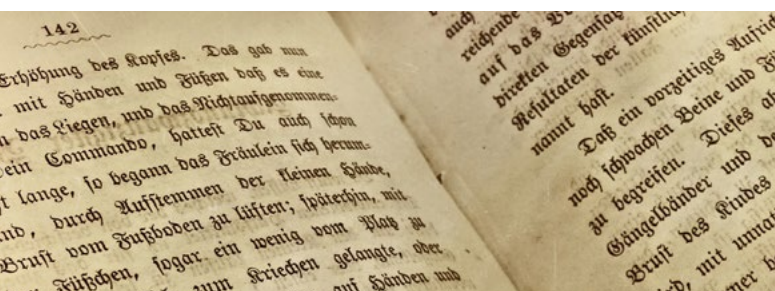 142
Erhöhung des Kopfes. Das gab nun
mit Händen und Füßen daß es eine
das Liegen, und das Nichtaufgenommen-
ein Commando, hattest Du auch schon
lange, so begann das Fräulein sich herum-
durch Aufstemmen der kleinen Hände,
Brust vom Fußboden zu lüften; späterhin, mit
Füßchen, sogar ein wenig vom Platz zu
zum Kriechen gelangte, oder
auf Händen und
auch
reichende
auf das
direkten Gegensatz
Resultaten der künstlich
nannt hast.
Daß ein vorzeitiges Aufrich
noch schwachen Beine und
zu begreifen. Dieses
Gängelbänder und
Brust des Kindes
mit